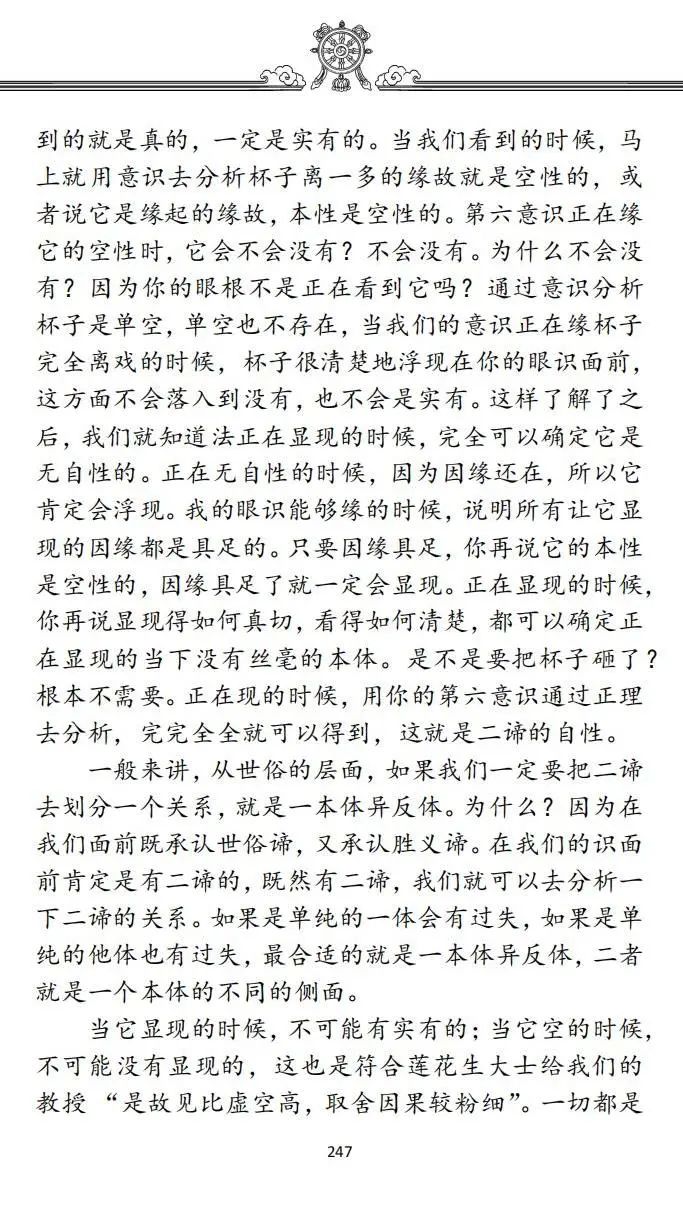 到的就是真的，一定是实有的。当我们看到的时候，马
上就用意识去分析杯子离一多的缘故就是空性的，或
者说它是缘起的缘故，本性是空性的。第六意识正在缘
它的空性时，它会不会没有？不会没有。为什么不会没
有？因为你的眼根不是正在看到它吗？通过意识分析
杯子是单空，单空也不存在，当我们的意识正在缘杯子
完全离戏的时候，杯子很清楚地浮现在你的眼识面前，
这方面不会落入到没有，也不会是实有。这样了解了之
后，我们就知道法正在显现的时候，完全可以确定它是
无自性的。正在无自性的时候，因为因缘还在，所以它
肯定会浮现。我的眼识能够缘的时候，说明所有让它显
现的因缘都是具足的。只要因缘具足，你再说它的本性
是空性的，因缘具足了就一定会显现。正在显现的时候，
你再说显现得如何真切，看得如何清楚，都可以确定正
在显现的当下没有丝毫的本体。是不是要把杯子砸了？
根本不需要。正在现的时候，用你的第六意识通过正理
去分析，完完全全就可以得到，这就是二谛的自性。
一般来讲，从世俗的层面，如果我们一定要把二谛
去划分一个关系，就是一本体异反体。为什么？因为在
我们面前既承认世俗谛，又承认胜义谛。在我们的识面
前肯定是有二谛的，既然有二谛，我们就可以去分析一
下二谛的关系。如果是单纯的一体会有过失，如果是单
纯的他体也有过失，最合适的就是一本体异反体，二者
就是一个本体的不同的侧面。
当它显现的时候，不可能有实有的；当它空的时候，
不可能没有显现的，这也是符合莲花生大士给我们的
教授“是故见比虚空高，取舍因果较粉细”。一切都是
247